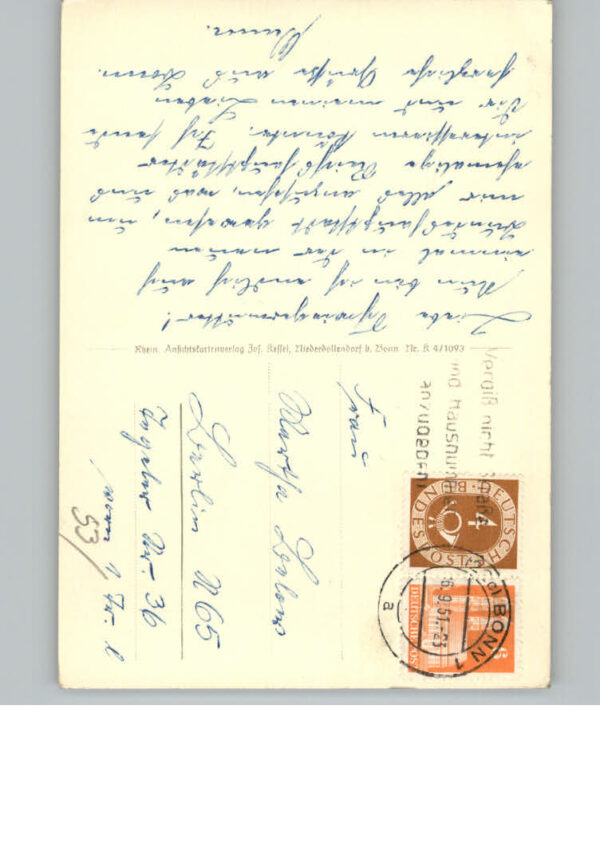 Liebe Schwiegermutter!
Nun bin ich endlich auch
einmal in der neuen
Bundeshauptstadt gewesen, um
mir alles anzusehen, was uns
ehemalige Reichshauptstädter
interessieren könnte. Ich sende
Dir und meinen Lieben
herzliche Grüße aus Bonn.
Rhein. Ansichtskartenverlag Jos. Kessel, Niederdollendorf b. Bonn Nr. K 4/1093
Vergiß nicht Straße
und Hausnummer
anzugeben
DEUTSCHE
BUNDESPOST
4
6
DEUTSCHE POST
BONN 1
16.9.51.-23
a
Frau
Martha
Berlin N 65
Str. 36
vorn 1 Tr. l
53/